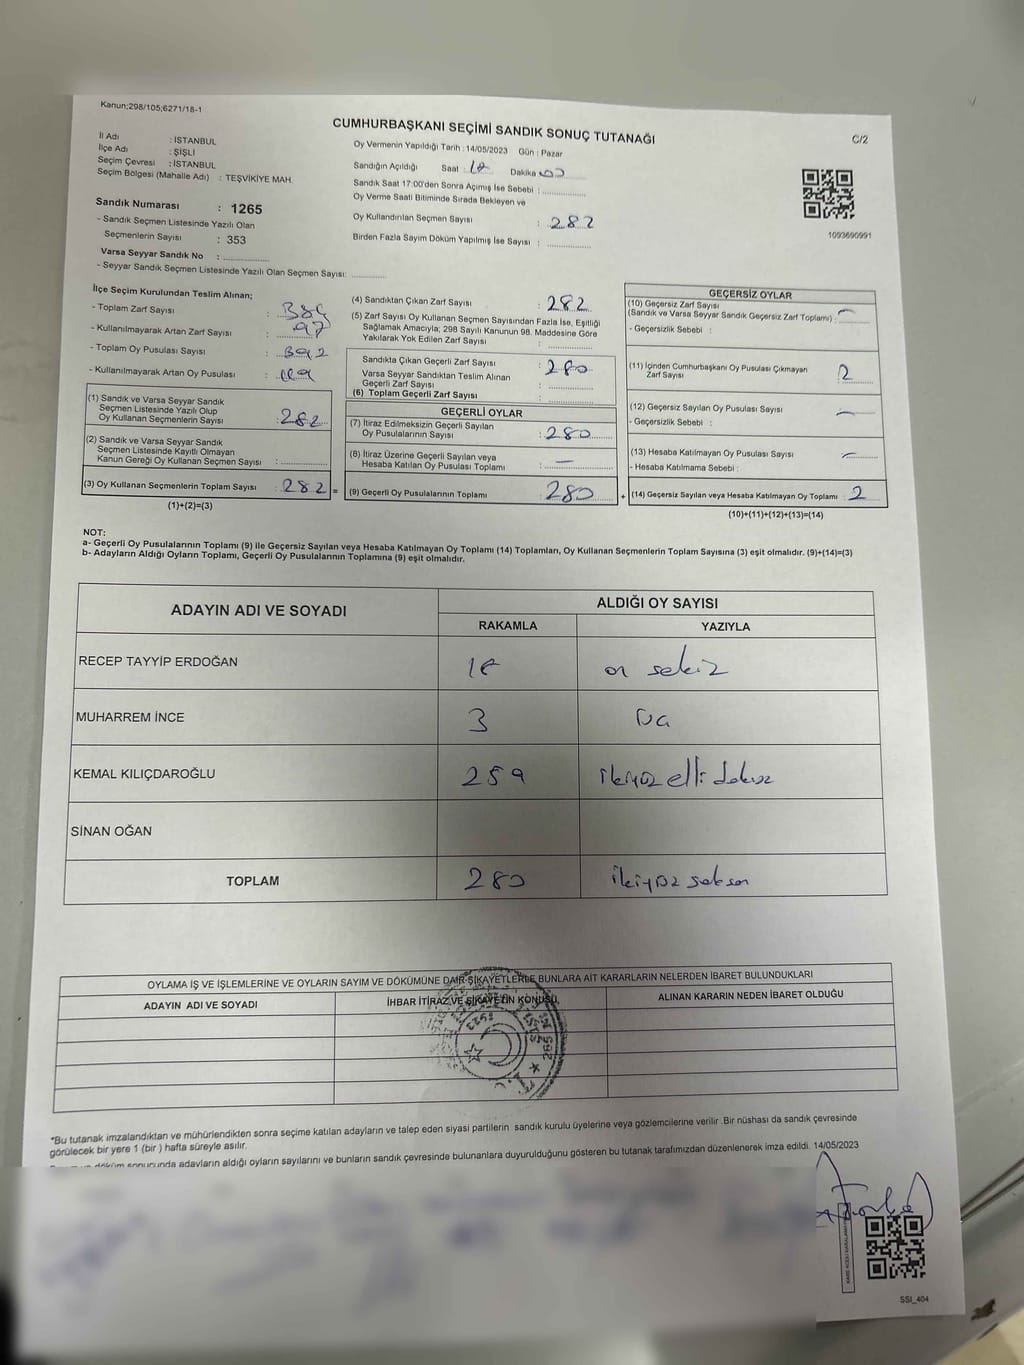 Kanun;298/105;6271/18-1
CUMHURBAŞKANI SEÇİMİ SANDIK SONUÇ TUTANAĞI
C/2
İl Adı : İSTANBUL
İlçe Adı : ŞİŞLİ
Seçim Çevresi : İSTANBUL
Seçim Bölgesi (Mahalle Adı) : TEŞVİKİYE MAH.
Sandık Numarası : 1265
- Sandık Seçmen Listesinde Yazılı Olan
Seçmenlerin Sayısı : 353
Varsa Seyyar Sandık No :
- Seyyar Sandık Seçmen Listesinde Yazılı Olan Seçmen Sayısı:
Oy Vermenin Yapıldığı Tarih : 14/05/2023 Gün : Pazar
Sandığın Açıldığı Saat : Dakika
Sandık Saat 17:00'den Sonra Açımış İse Sebebi :
Oy Verme Saati Bitiminde Sırada Bekleyen ve
Oy Kullandırılan Seçmen Sayısı : 282
Birden Fazla Sayım Döküm Yapılmış İse Sayısı :
1093690991
İlçe Seçim Kurulundan Teslim Alınan;
- Toplam Zarf Sayısı :
- Kullanılmayarak Artan Zarf Sayısı : 97
- Toplam Oy Pusulası Sayısı : 392
- Kullanılmayarak Artan Oy Pusulası :
(1) Sandık ve Varsa Seyyar Sandık
Seçmen Listesinde Yazılı Olup
Oy Kullanan Seçmenlerin Sayısı : 282
(2) Sandık ve Varsa Seyyar Sandık
Seçmen Listesinde Kayıtlı Olmayan
Kanun Gereği Oy Kullanan Seçmen Sayısı :
(3) Oy Kullanan Seçmenlerin Toplam Sayısı : 282 =
(1)+(2)=(3)
(4) Sandıktan Çıkan Zarf Sayısı : 282
(5) Zarf Sayısı Oy Kullanan Seçmen Sayısından Fazla İse, Eşitliği
Sağlamak Amacıyla; 298 Sayılı Kanunun 98. Maddesine Göre
Yakılarak Yok Edilen Zarf Sayısı :
Sandıkta Çıkan Geçerli Zarf Sayısı : 280
Varsa Seyyar Sandıktan Teslim Alınan
Geçerli Zarf Sayısı :
(6) Toplam Geçerli Zarf Sayısı :
GEÇERLİ OYLAR
(7) İtiraz Edilmeksizin Geçerli Sayılan
Oy Pusulalarının Sayısı : 280
(8) İtiraz Üzerine Geçerli Sayılan veya
Hesaba Katılan Oy Pusulası Toplamı : —
(9) Geçerli Oy Pusulalarının Toplamı 280 +
GEÇERSİZ OYLAR
(10) Geçersiz Zarf Sayısı
(Sandık ve Varsa Seyyar Sandık Geçersiz Zarf Toplamı) : —
- Geçersizlik Sebebi :
(11) İçinden Cumhurbaşkanı Oy Pusulası Çıkmayan
Zarf Sayısı : 2
(12) Geçersiz Sayılan Oy Pusulası Sayısı —
- Geçersizlik Sebebi :
(13) Hesaba Katılmayan Oy Pusulası Sayısı —
- Hesaba Katılmama Sebebi :
(14) Geçersiz Sayılan veya Hesaba Katılmayan Oy Toplamı : 2
(10)+(11)+(12)+(13)=(14)
NOT:
a- Geçerli Oy Pusulalarının Toplamı (9) ile Geçersiz Sayılan veya Hesaba Katılmayan Oy Toplamı (14) Toplamları, Oy Kullanan Seçmenlerin Toplam Sayısına (3) eşit olmalıdır. (9)+(14)=(3)
b- Adayların Aldığı Oyların Toplamı, Geçerli Oy Pusulalarının Toplamına (9) eşit olmalıdır.
ADAYIN ADI VE SOYADI
ALDIĞI OY SAYISI
RAKAMLA YAZIYLA
RECEP TAYYİP ERDOĞAN 18 on sekiz
MUHARREM İNCE 3
KEMAL KILIÇDAROĞLU 259 ikiyüz elli dokuz
SİNAN OĞAN
TOPLAM 280 ikiyüz seksen
OYLAMA İŞ VE İŞLEMLERİNE VE OYLARIN SAYIM VE DÖKÜMÜNE DAİR ŞİKAYETLERLE BUNLARA AİT KARARLARIN NELERDEN İBARET BULUNDUKLARI
ADAYIN ADI VE SOYADI
İHBAR İTİRAZ VE ŞİKAYETİN KONUSU
ALINAN KARARIN NEDEN İBARET OLDUĞU
*Bu tutanak imzalandıktan ve mühürlendikten sonra seçime katılan adayların ve talep eden siyasi partilerin sandık kurulu üyelerine veya gözlemcilerine verilir .Bir nüshası da sandık çevresinde
görülecek bir yere 1 (bir ) hafta süreyle asılır.
sonucunda adayların aldığı oyların sayılarını ve bunların sandık çevresinde bulunanlara duyurulduğunu gösteren bu tutanak tarafımızdan düzenlenerek imza edildi. 14/05/2023
SSI_404